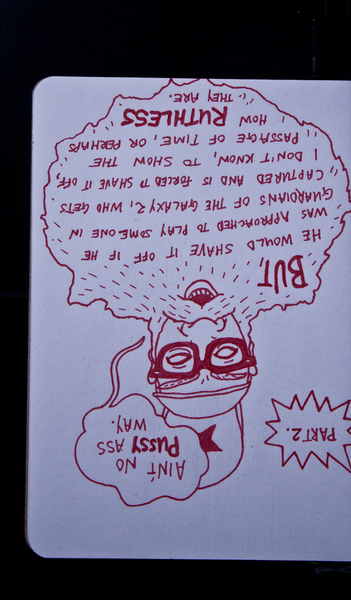 PART 2.
AIN'T NO
PUSSY ASS
WAY.
BUT,
HE WOULD SHAVE IT OFF IF HE
WAS APPROACHED TO PLAY SOMEONE IN
GUARDIANS OF THE GALAXY 2, WHO GETS
CAPTURED AND IS FORCED TO SHAVE IT OFF,
I DON'T, KNOW, TO SHOW THE
PASSAGE OF TIME, OR PERHAPS
HOW RUTHLESS
THEY ARE.